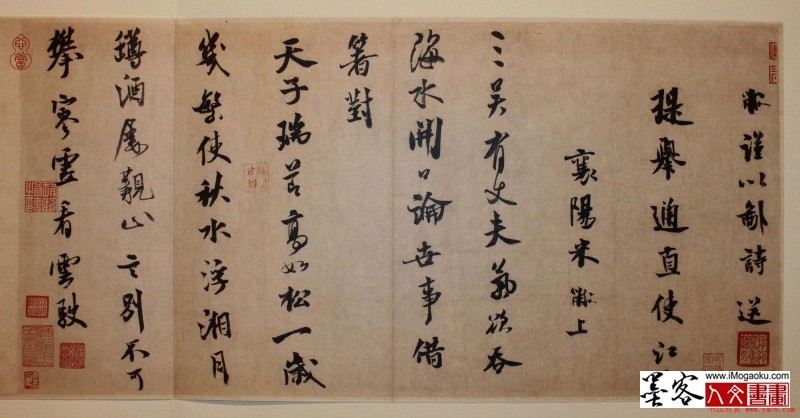 黻謹以鄙詩送
提舉通直使江
襄陽米黻上
三吴有丈夫氣欲吞
海水開口論世事借
箸對
天子瑞節高如松一歲
幾繁使秋水浮湘月
罇酒屢山言別不可
攀寥雲看雲駛
墨客
www.iMogaoku.com
人文書畫